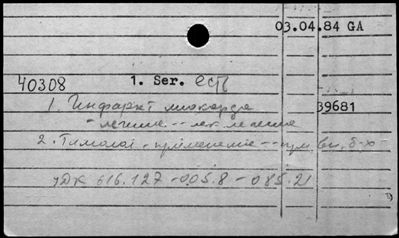 03.04.84 GA
40308 1. Ser. есть
1. Инфаркт миокарда 39681
- лечение -- лек. лечение
2. Тимолол - применение -- при
УДК 616.127-005.8-085.21